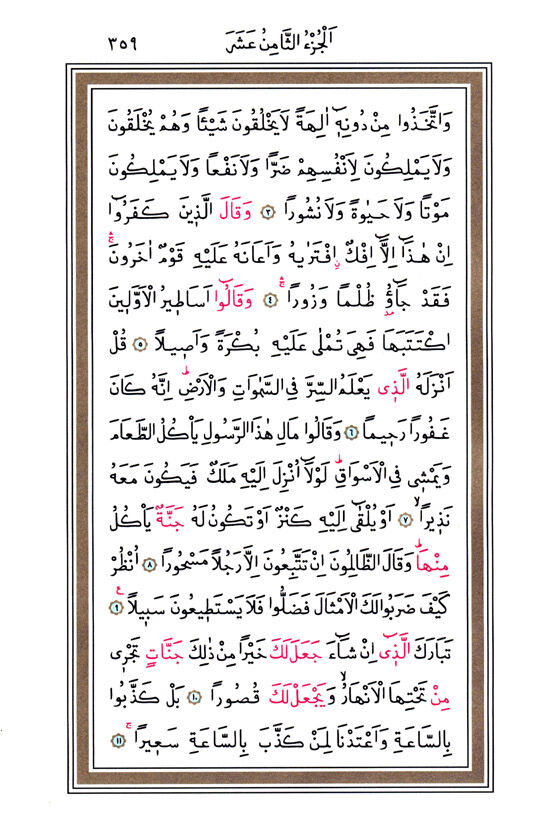 اَلْجُزْءُ الثَّامِنُ عَشَرَ ٣٥٩
وَاتَّخَذُوا مِنْ دُونِه۪ٓ اٰلِهَةً لَا يَخْلُقُونَ شَيْـًٔا وَهُمْ يُخْلَقُونَ
وَلَا يَمْلِكُونَ لِاَنْفُسِهِمْ ضَرًّا وَلَا نَفْعًا وَلَا يَمْلِكُونَ
مَوْتًا وَلَا حَيٰوةً وَلَا نُشُورًا ٣ وَقَالَ الَّذ۪ينَ كَفَرُٓوا
اِنْ هٰذَٓا اِلَّٓا اِفْكٌۨ افْتَرٰيهُ وَاَعَانَهُ عَلَيْهِ قَوْمٌ اٰخَرُونَۚۛ
فَقَدْ جَٓاؤُ۫ ظُلْمًا وَزُورًاۚۛ ٤ وَقَالُٓوا اَسَاط۪يرُ الْاَوَّل۪ينَ
اكْتَتَبَهَا فَهِيَ تُمْلٰى عَلَيْهِ بُكْرَةً وَاَص۪يلًا ٥ قُلْ
اَنْزَلَهُ الَّذ۪ي يَعْلَمُ السِّرَّ فِي السَّمٰوَاتِ وَالْاَرْضِۜ اِنَّهُ كَانَ
غَفُورًا رَح۪يمًا ٦ وَقَالُوا مَالِ هٰذَا الرَّسُولِ يَأْكُلُ الطَّعَامَ
وَيَمْش۪ي فِي الْاَسْوَاقِۜ لَوْلَٓا اُنْزِلَ اِلَيْهِ مَلَكٌ فَيَكُونَ مَعَهُ
نَذ۪يرًاۙ ٧ اَوْ يُلْقٰٓى اِلَيْهِ كَنْزٌ اَوْ تَكُونُ لَهُ جَنَّةٌ يَأْكُلُ
مِنْهَاۜ وَقَالَ الظَّالِمُونَ اِنْ تَتَّبِعُونَ اِلَّا رَجُلًا مَسْحُورًا ٨ اُنْظُرْ
كَيْفَ ضَرَبُوا لَكَ الْاَمْثَالَ فَضَلُّوا فَلَا يَسْتَط۪يعُونَ سَب۪يلًا۟ ٩
تَبَارَكَ الَّذ۪ٓي اِنْ شَٓاءَ جَعَلَ لَكَ خَيْرًا مِنْ ذٰلِكَ جَنَّاتٍ تَجْر۪ي
مِنْ تَحْتِهَا الْاَنْهَارُۙ وَيَجْعَلْ لَكَ قُصُورًا ١٠ بَلْ كَذَّبُوا
بِالسَّاعَةِ وَاَعْتَدْنَا لِمَنْ كَذَّبَ بِالسَّاعَةِ سَع۪يرًاۚ ١١